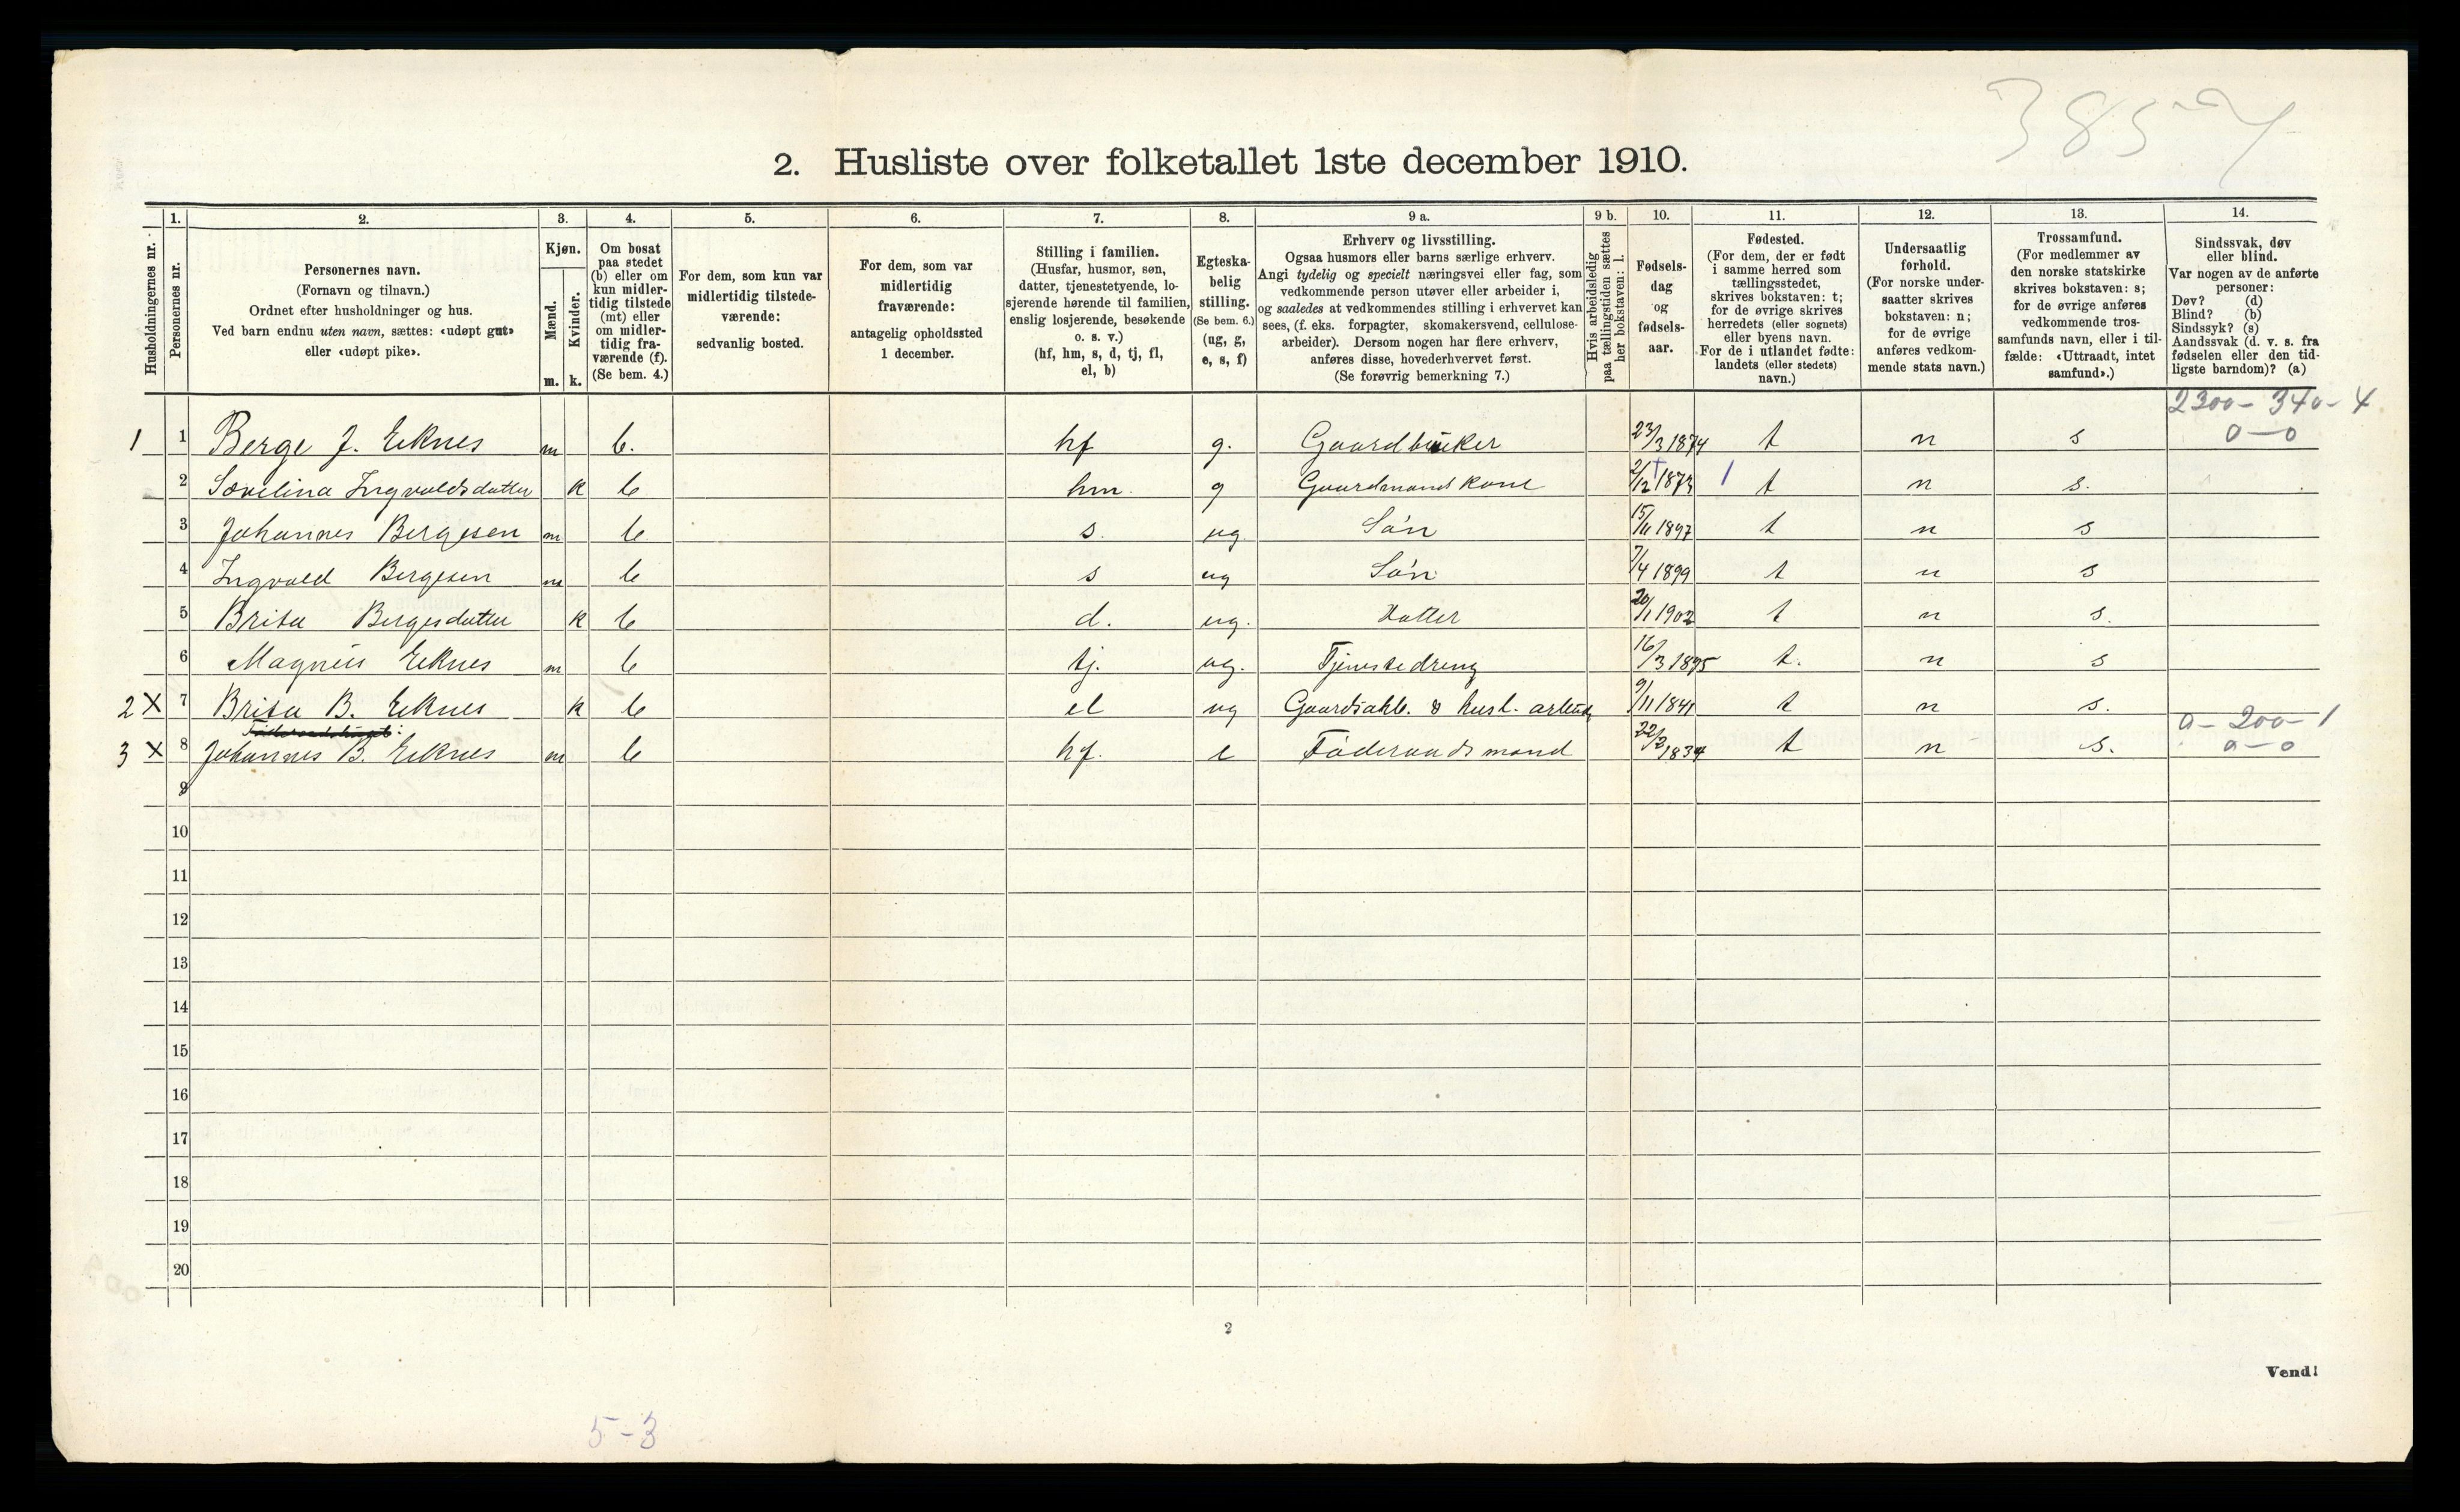 3857
2. Husliste over folketallet 1ste december 1910.
Husholdningernes nr.
1. Personernes nr.
2. Personernes navn. (Fornavn og tilnavn.) Ordnet efter husholdninger og hus. Ved barn endnu uten navn, sættes: «udøpt gut» eller «udøpt pike».
3. Kjøn. Mænd. m. Kvinder. k.
4. Om bosat paa stedet (b) eller om kun midlertidig tilstede (mt) eller om midlertidig fraværende (f). (Se bem. 4.)
5. For dem, som kun var midlertidig tilstedeværende: sedvanlig bosted.
6. For dem, som var midlertidig fraværende: antagelig opholdssted 1 december.
7. Stilling i familien. (Husfar, husmor, søn, datter, tjenestetyende, losjerende hørende til familien, enslig losjerende, besøkende o. s. v.) (hf, hm, s, d, tj, fl, el, b)
8. Egteskabelig stilling. (Se bem. 6.) (ug, g, e, s, f)
9 a. Erhverv og livsstilling. Ogsaa husmors eller barns særlige erhverv. Angi tydelig og specielt næringsvei eller fag, som vedkommende person utøver eller arbeider i, og saaledes at vedkommendes stilling i erhvervet kan sees, (f. eks. forpagter, skomakersvend, cellulosearbeider). Dersom nogen har flere erhverv, anføres disse, hovederhvervet først. (Se forøvrig bemerkning 7.)
9 b. Hvis arbeidsledig paa tællingstiden sættes her bokstaven: l.
10. Fødselsdag og fødselsaar.
11. Fødested. (For dem, der er født i samme herred som tællingsstedet, skrives bokstaven: t; for de øvrige skrives herredets (eller sognets) eller byens navn. For de i utlandet fødte: landets (eller stedets) navn.)
12. Undersaatlig forhold. (For norske undersaatter skrives bokstaven: n; for de øvrige anføres vedkommende stats navn.)
13. Trossamfund. (For medlemmer av den norske statskirke skrives bokstaven: s; for de øvrige anføres vedkommende trossamfunds navn, eller i tilfælde: «Uttraadt, intet samfund».)
14. Sindssvak, døv eller blind. Var nogen av de anførte personer: Døv? (d) Blind? (b) Sindssyk? (s) Aandssvak (d. v. s. fra fødselen eller den tidligste barndom)? (a)
2300 - 340 - 4
0 - 0
1 1 Berge J. Eiknes m b. hf g. Gaardbruker 23/3 1874 t n s
2 Sørelina Ingvaldsdatter k b hm. g Gaardmandskone 2/12 1873 1 t n s.
3 Johannes Bergesen m b s. ug. Søn 15/11 1897 t n s
4 Ingvald Bergesen m b s ug Søn 7/4 1899 t n s
5 Brita Bergesdatter k b d. ug. Datter 20/1 1902 t n s.
6 Magnus Eiknes m b tj. ug. Tjenestedreng 16/3 1895 t. n s
2 X 7 Brita B. Eiknes k b el ug Gaardsarb. & husl. arbeide 9/11 1841 t n s.
0 - 200 - 1
3 X 8 Johannes B. Eiknes m b hf. e Føderaadsmand 22/2 1834 t n s. 0 - 0
9
10
11
12
13
14
15
16
17
18
19
20
2
Vend!
5 - 3